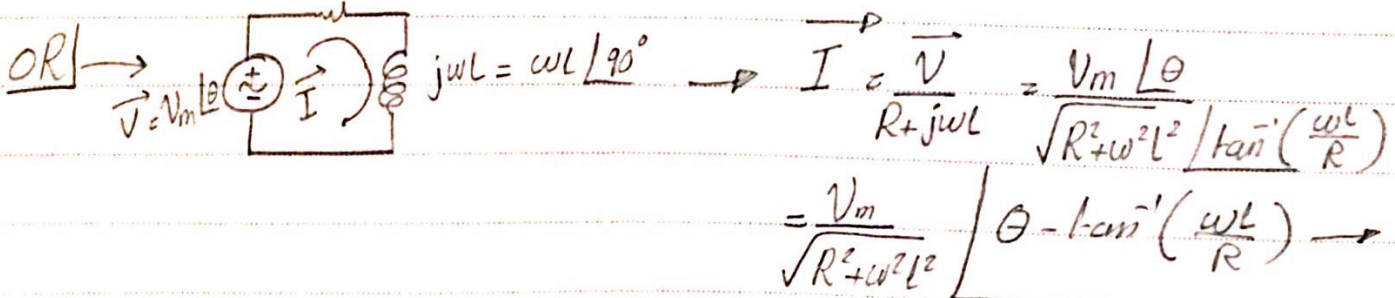 OR → V⃗ = Vm∠θ I⃗ jωL = ωL∠90° → I⃗ = V⃗ / (R+jωL) = Vm∠θ / (√(R²+ω²L²) ∠tan⁻¹(ωL/R))
= Vm / √(R²+ω²L²) ∠θ - tan⁻¹(ωL/R) →